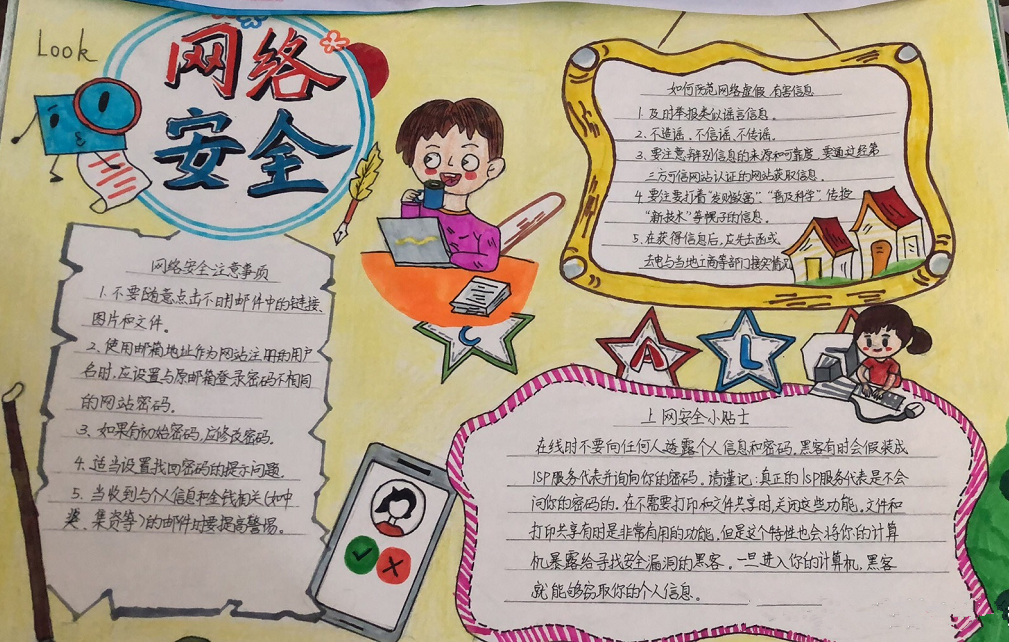 Look
网络
安全
网络安全注意事项
1. 不要随意点击不明邮件中的链接、
图片和文件。
2、使用邮箱地址作为网站注册的用户
名时,应设置与原邮箱登录密码不相同
的网站密码。
3、如果有初始密码,应修改密码。
4. 适当设置找回密码的提示问题。
5、当收到与个人信息和金钱相关(如中
奖、集资等)的邮件时要提高警惕。
如何防范网络虚假 有害信息
1. 及时举报类似谣言信息。
2. 不造谣、不信谣、不传谣。
3、要注意辨别信息的来源和可靠度,要通过经第
三方可信网站认证的网站获取信息。
4. 要注要打着“发财致富”、“普及科学”、传授
“新技术”等幌子的信息。
5、在获得信息后,应先去函或
去电与当地工商等部门 情况
C
A
L
上网安全小贴士
在线时不要向任何人透露个人信息和密码,黑客有时会假装成
ISP服务代表并询问你的密码。请谨记:真正的ISP服务代表是不会
问你的密码的。在不需要打印和文件共享时,关闭这些功能。文件和
打印共享有时是非常有用的功能,但是这个特性也会将你的计算
机暴露给寻找安全漏洞的黑客。一旦进入你的计算机,黑客
就能够窃取你的个人信息。